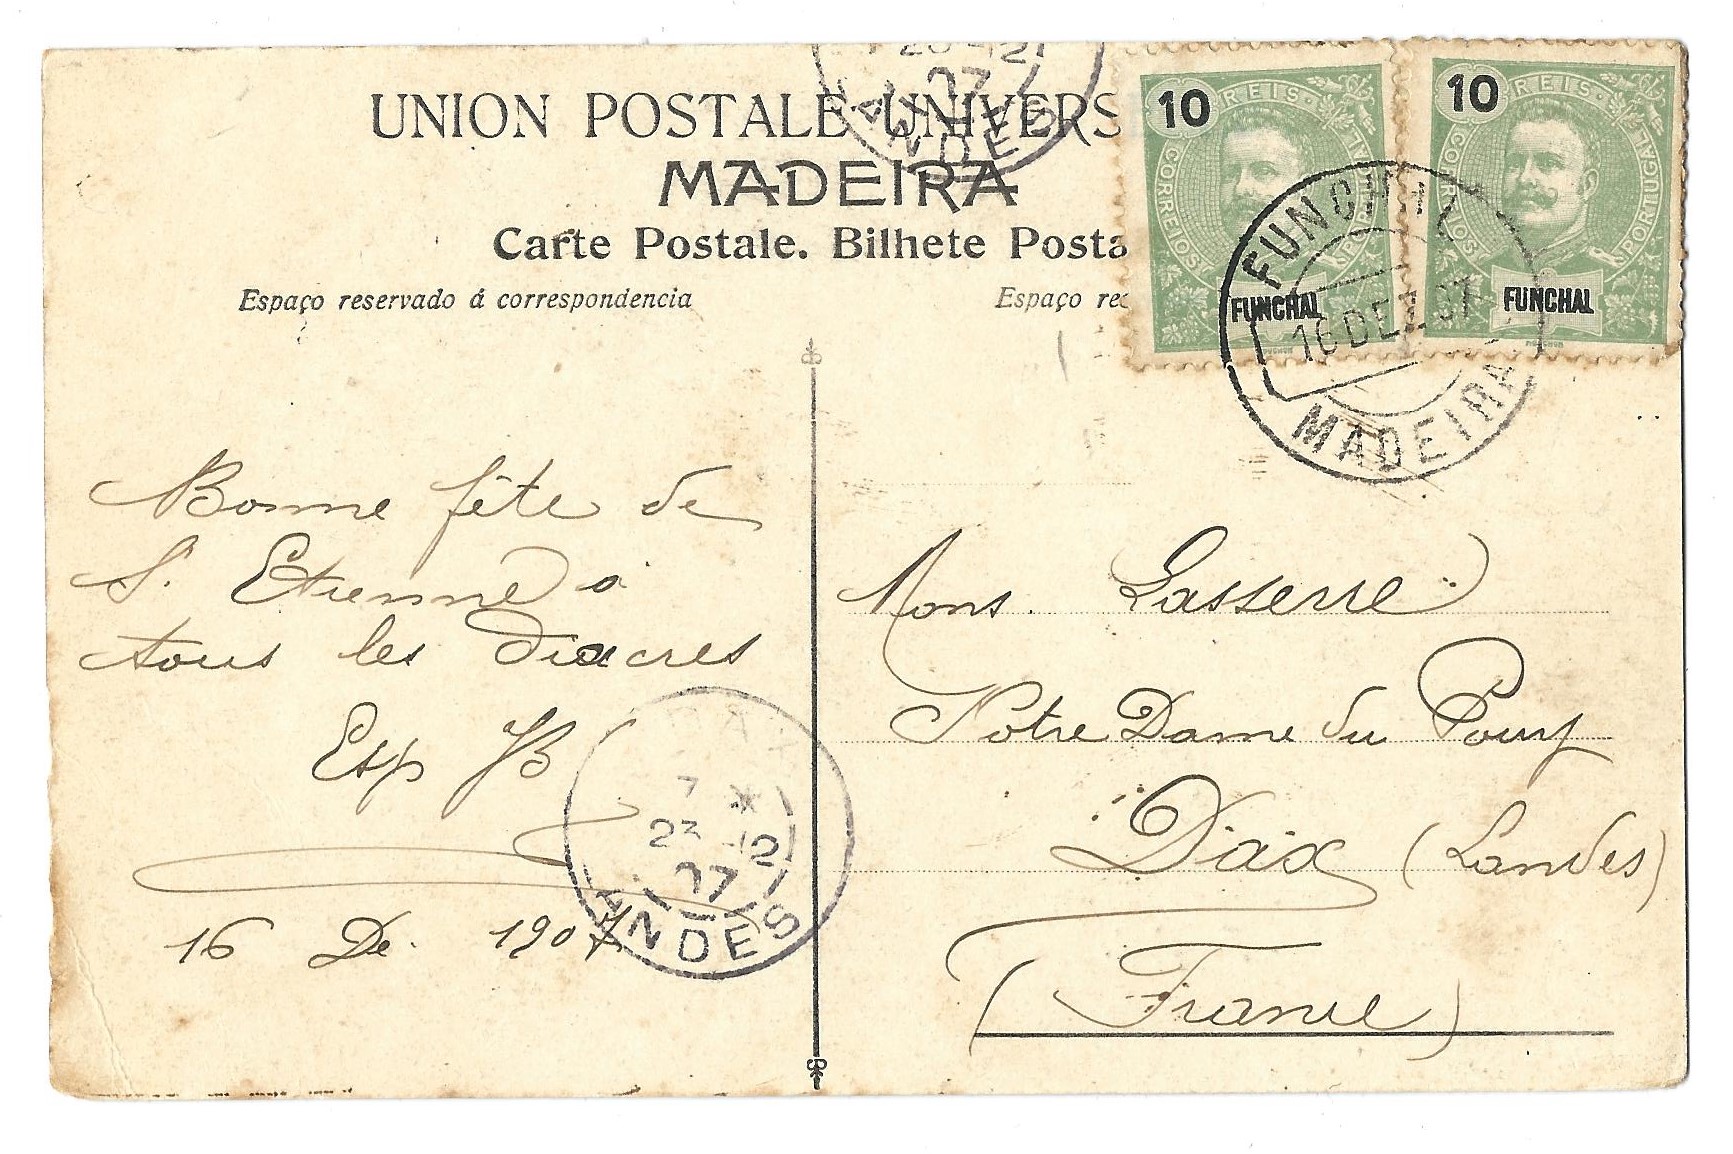 UNION POSTALE UNIVERS
MADEIRA
Carte Postale. Bilhete Posta
Espaço reservado á correspondencia
Espaço rec
23 12
07
LANDES
10 REIS
CORREIOS
PORTUGAL
FUNCHAL
10 REIS
CORREIOS
PORTUGAL
FUNCHAL
FUNCHAL
16 DEZ 07
MADEIRA
Bonne fête de
S. Etienne à
tous les diacres
Esp JB
16 De. 1907
7
23 12
07
LANDES
Mons. Lasserre
Notre Dame du Pouy
Dax (Landes)
(France)